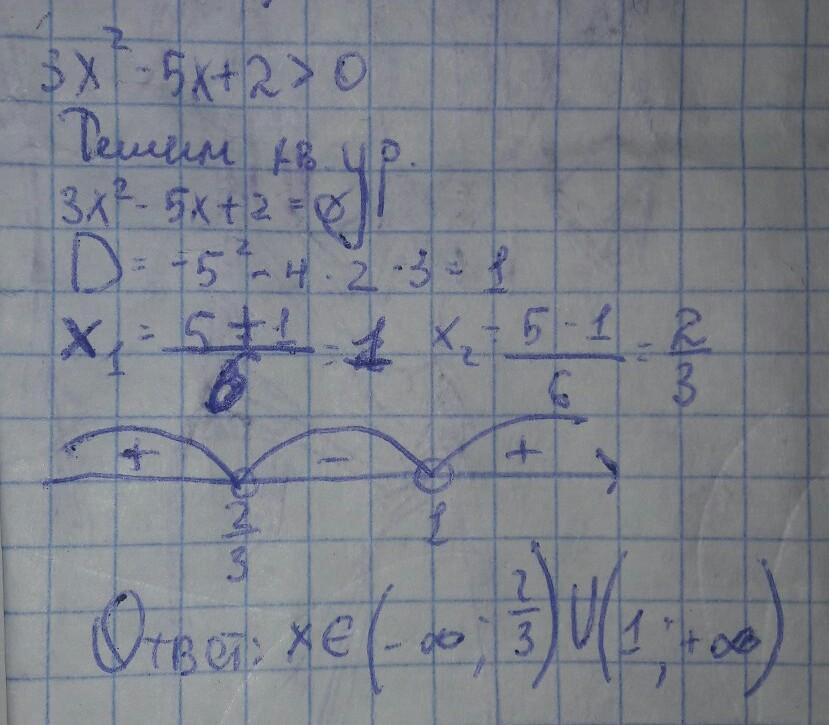 3x² - 5x + 2 > 0
Решим кв ур.
3x² - 5x + 2 = 0
D = -5² - 4 · 2 · 3 = 1
x₁ = (5 + 1)/6 = 1 x₂ = (5 - 1)/6 = 2/3
+ - +
2/3 1
Ответ: x ∈ (-∞; 2/3) ∪ (1; +∞)